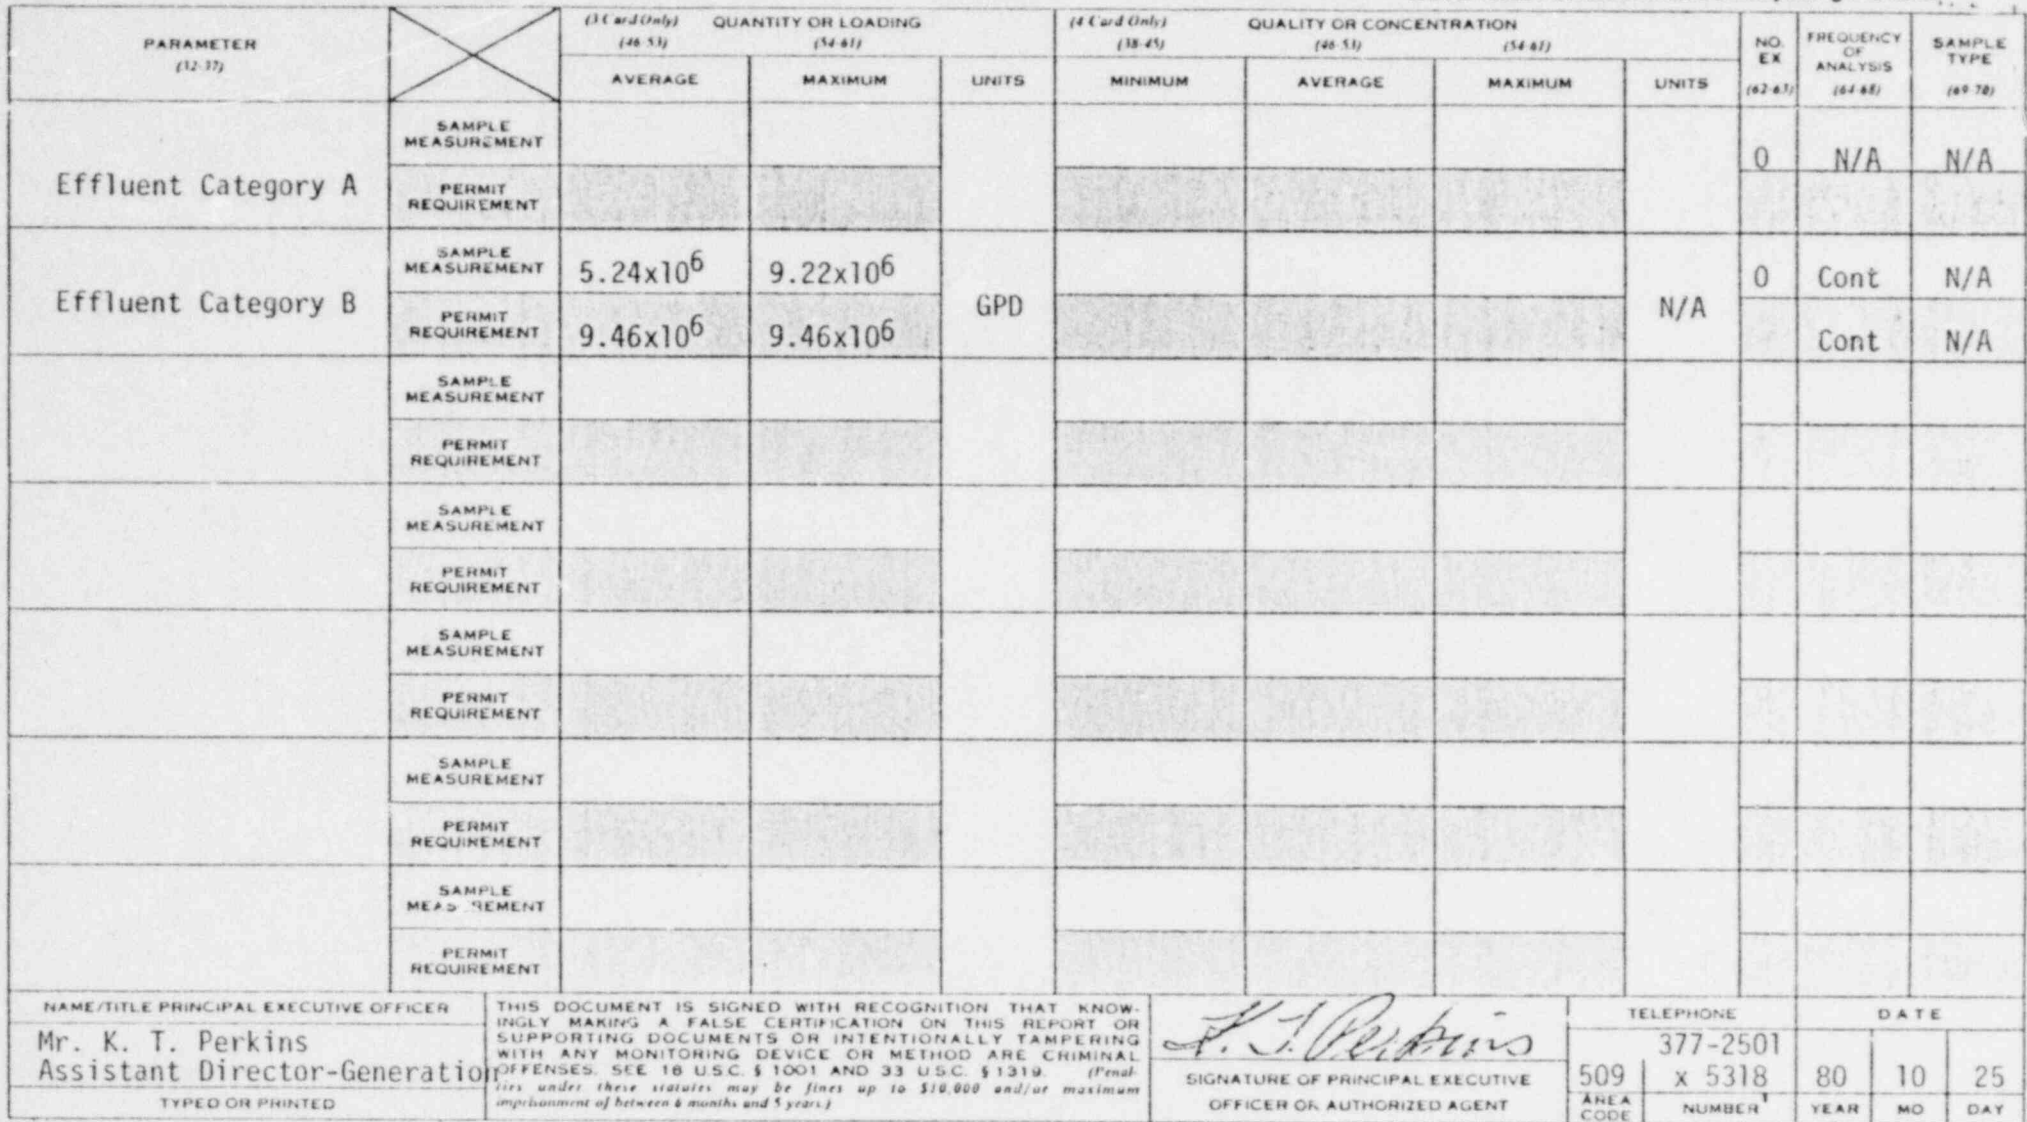 PARAMETER
(32-37)
(3 Card Only) QUANTITY OR LOADING
(46-53) (54-61)
AVERAGE MAXIMUM UNITS
(4 Card Only) QUALITY OR CONCENTRATION
(38-45) (46-53) (54-61)
MINIMUM AVERAGE MAXIMUM UNITS
NO.
EX
(62-63)
FREQUENCY
OF
ANALYSIS
(64-68)
SAMPLE
TYPE
(69-70)
Effluent Category A
SAMPLE
MEASUREMENT
0 N/A N/A
PERMIT
REQUIREMENT
Effluent Category B
SAMPLE
MEASUREMENT
5.24x10⁶ 9.22x10⁶
GPD
N/A
0 Cont N/A
PERMIT
REQUIREMENT
9.46x10⁶ 9.46x10⁶
Cont N/A
SAMPLE
MEASUREMENT
PERMIT
REQUIREMENT
SAMPLE
MEASUREMENT
PERMIT
REQUIREMENT
SAMPLE
MEASUREMENT
PERMIT
REQUIREMENT
SAMPLE
MEASUREMENT
PERMIT
REQUIREMENT
SAMPLE
MEAS REMENT
PERMIT
REQUIREMENT
NAME/TITLE PRINCIPAL EXECUTIVE OFFICER
Mr. K. T. Perkins
Assistant Director-Generation
TYPED OR PRINTED
THIS DOCUMENT IS SIGNED WITH RECOGNITION THAT KNOW-
INGLY MAKING A FALSE CERTIFICATION ON THIS REPORT OR
SUPPORTING DOCUMENTS OR INTENTIONALLY TAMPERING
WITH ANY MONITORING DEVICE OR METHOD ARE CRIMINAL
OFFENSES. SEE 18 U.S.C. § 1001 AND 33 U.S.C. § 1319. (Penal-
ties under these statutes may be fines up to $10,000 and/or maximum
imprisonment of between 6 months and 5 years.)
K. T. Perkins
SIGNATURE OF PRINCIPAL EXECUTIVE
OFFICER OR AUTHORIZED AGENT
TELEPHONE
377-2501
509 x 5318
AREA
CODE
NUMBER
DATE
80 10 25
YEAR MO DAY